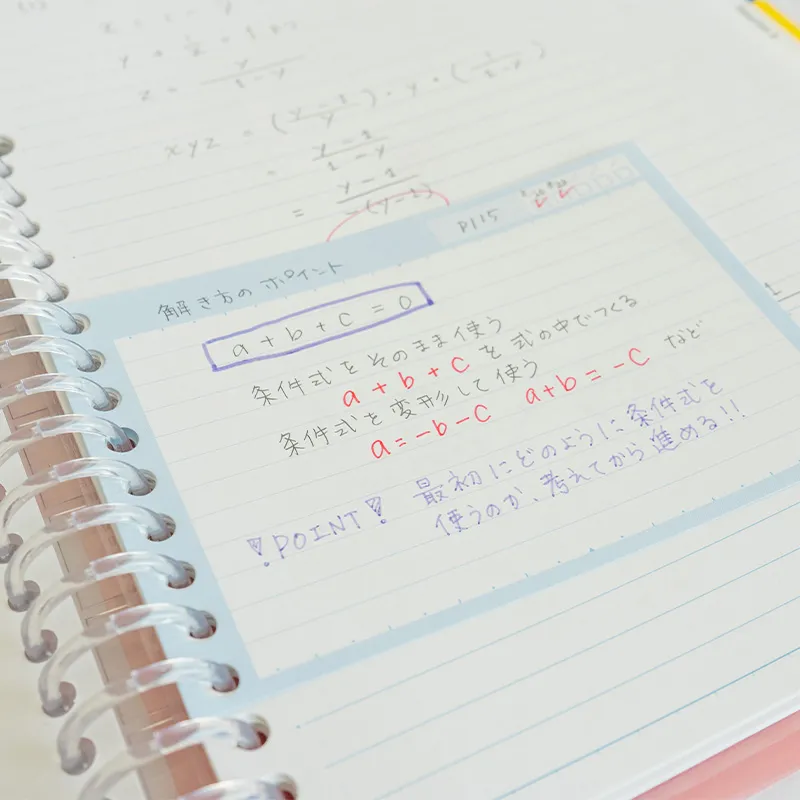 y
z = ―――
1-y
xyz = (y-1/y)・y・(1/1-y)
= y-1/1-y
= y-1/-(y-1)
P115
解き方のポイント
a+b+c=0
条件式をそのまま使う
a+b+cを式の中でつくる
条件式を変形して使う
a=-b-c a+b=-c など
!POINT! 最初にどのように条件式を
使うのか、考えてから進める!!